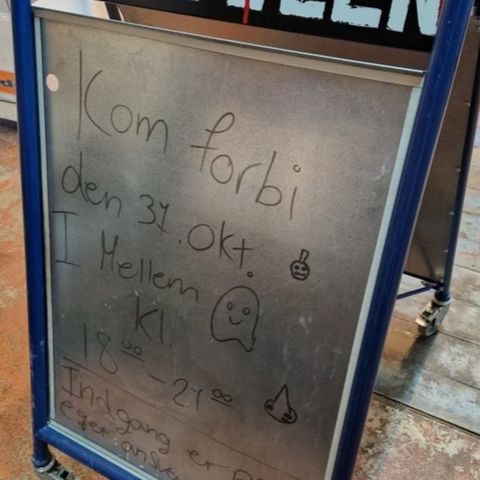 WEEN
Kom forbi
den 31. Okt.
I Mellem
Kl.
18⁰⁰ - 21⁰⁰
Indgang er
eget